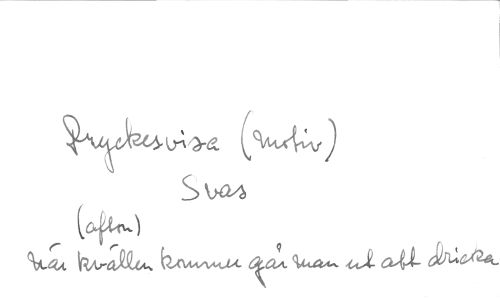 Dryckesvisa (motiv)
Svas
(afton)
när kvällen kommer går man ut att dricka